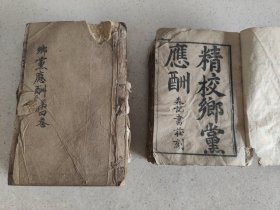 鄉黨應酬
四卷
精校鄉黨
應酬